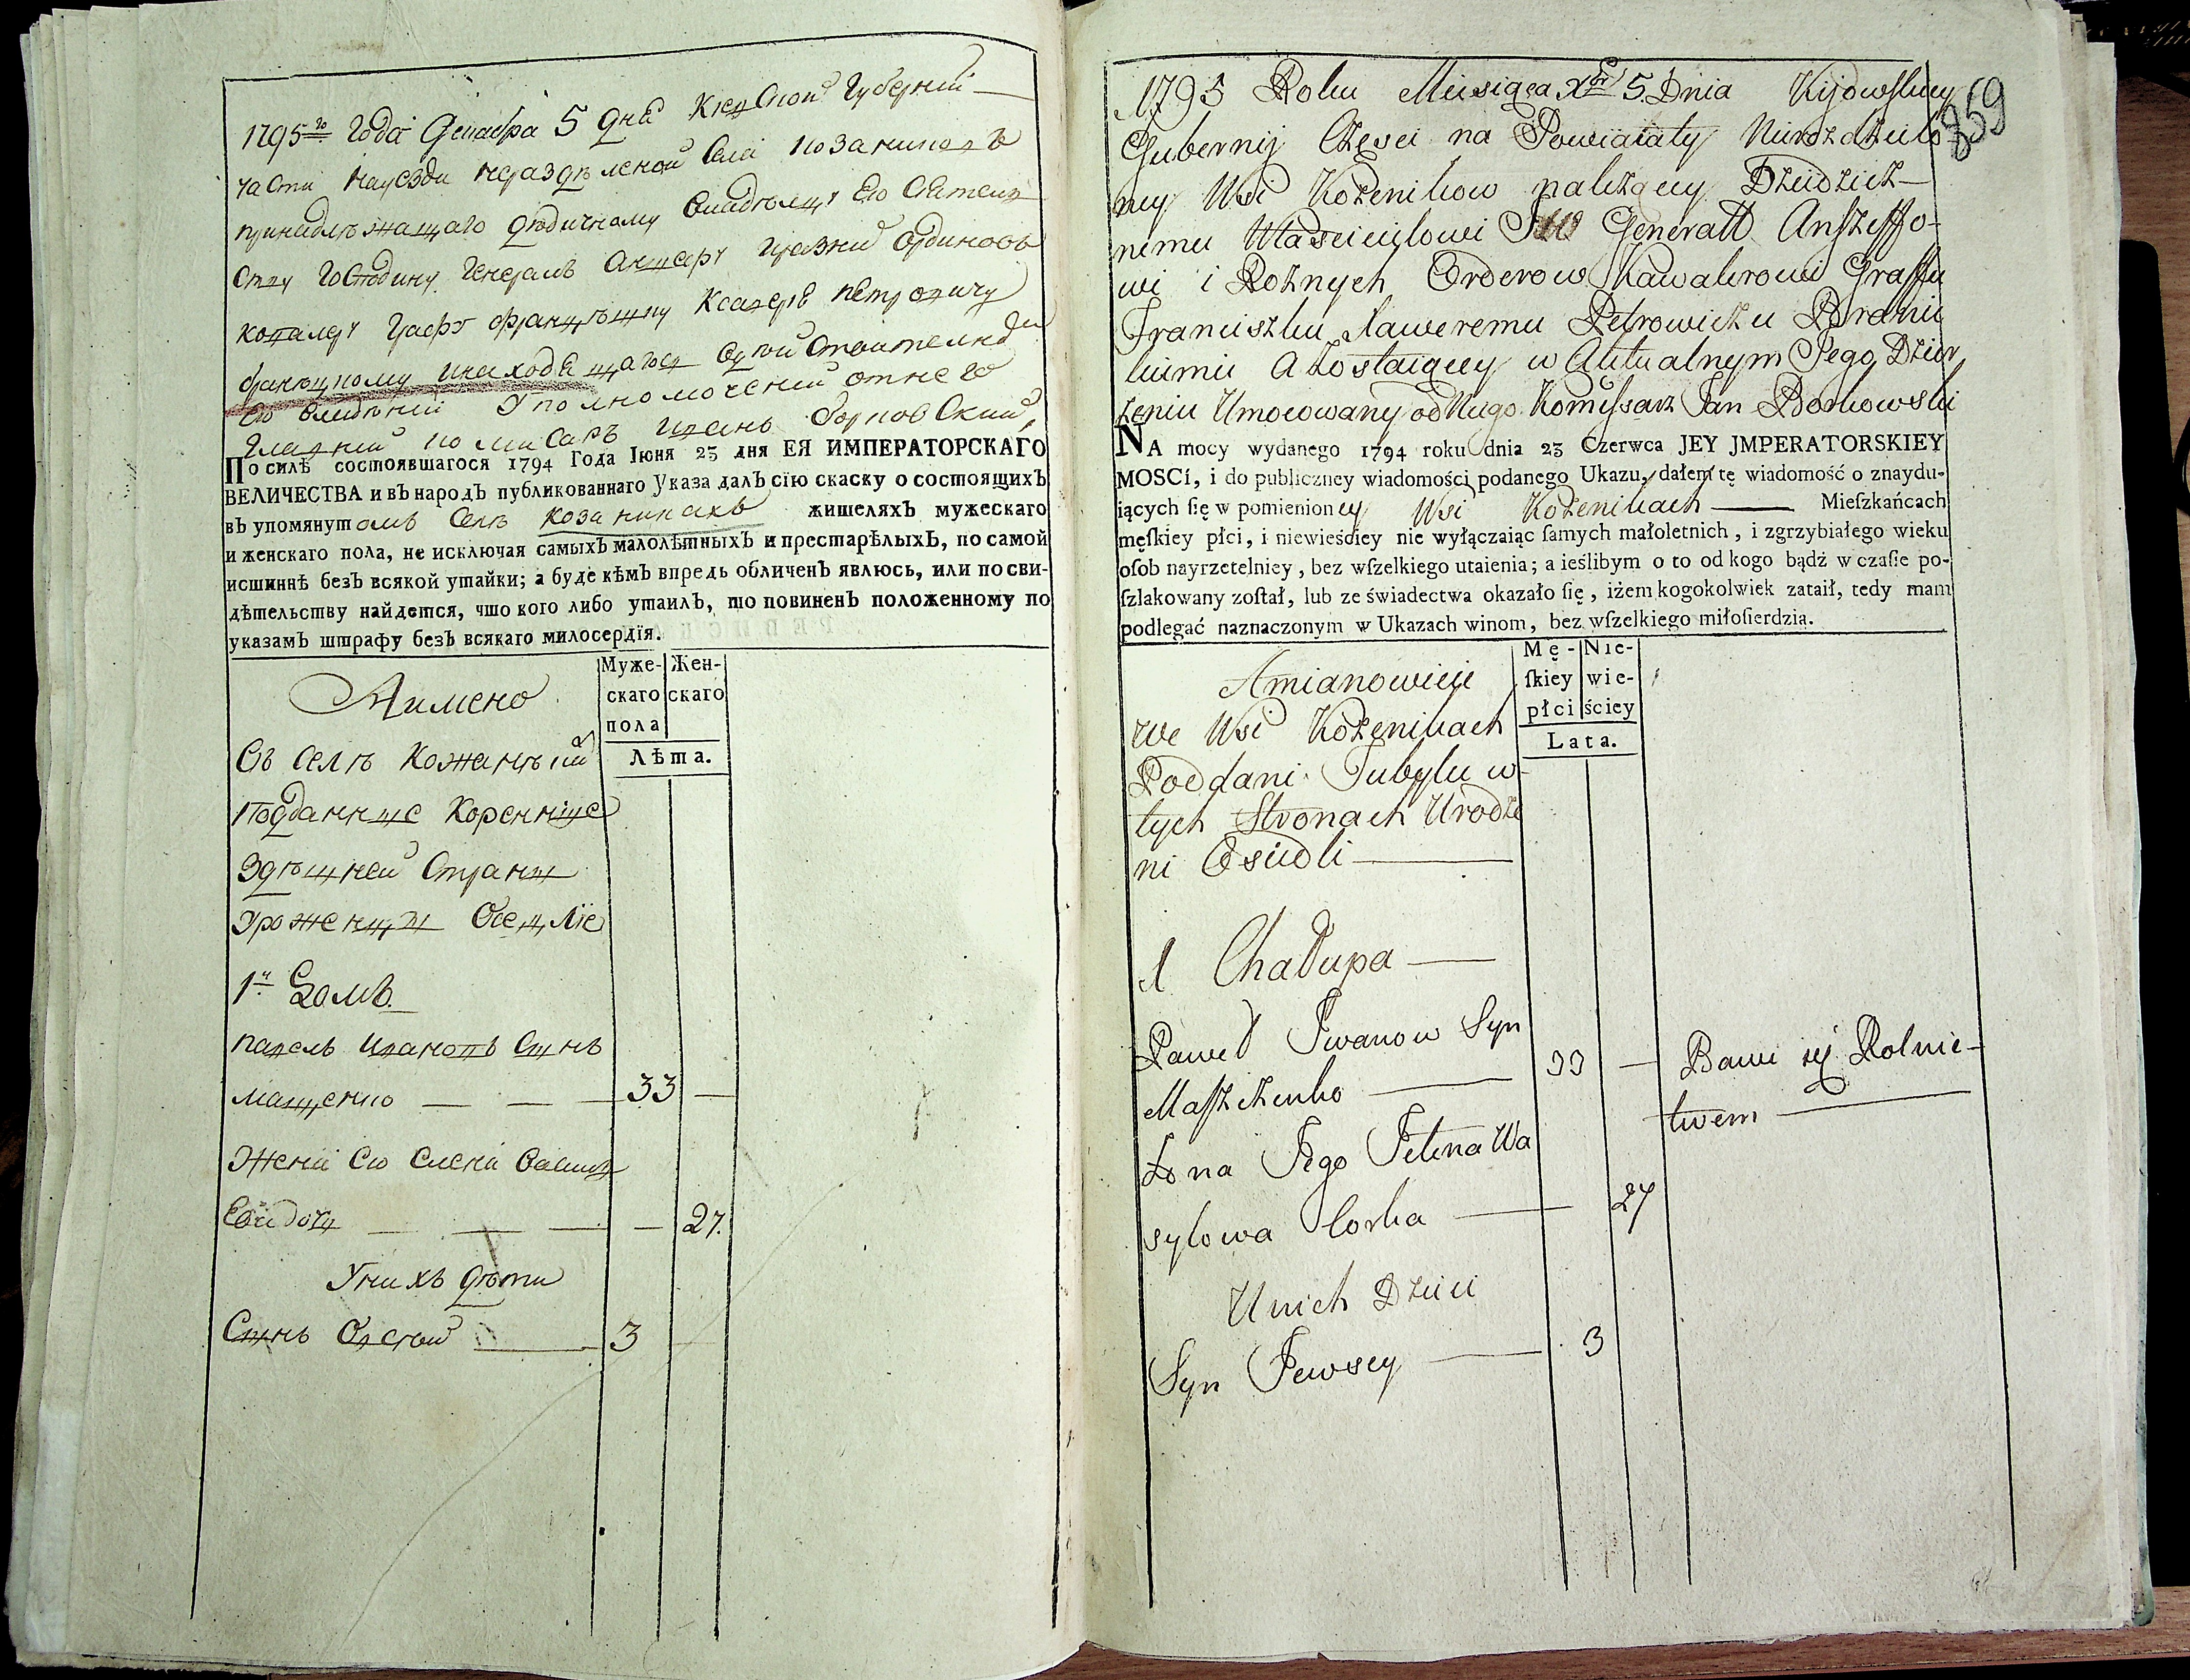 1795го Года Декабра 5 дня Киевской Губернии
части на уезди неразделеной Села Козаников
принадлежащаго дедичному владелцу Его
Господину Генералъ Аншефу Орденовъ
Кавалеру Графу Ксаверѣ Петровичу
находящагося
Его владений Уполномочений от него
Главний Комисаръ Иванъ Борковский,
По силѣ состоявшагося 1794 Года Іюня 23 дня ЕЯ ИМПЕРАТОРСКАГО
ВЕЛИЧЕСТВА и въ народъ публикованнаго Указа далъ сію скаску о состоящихъ
въ упомянутомъ Селѣ Козаникахъ жителяхъ мужескаго
и женскаго пола, не исключая самыхъ малолѣтныхъ и престарѣлыхъ, по самой
истиннѣ безъ всякой утайки; а буде кѣмъ впредь обличенъ явлюсь, или по сви-
дѣтельству найдется, что кого либо утаилъ, то повиненъ положенному по
указамъ штрафу безъ всякаго милосердія.
Аимено
Муже-
скаго
пола
Жен-
скаго
Лѣта.
Въ Селѣ
Подданние Коренние
Здешней Страны
Уроженцы Оседлие
1й Домъ
Павелъ Ивановъ Сынъ
Мащенко — — — 33 —
Жена Его Елена Васил
Ева дочь — — — — 27.
У них дети
Сынъ Овсей — 3
859
1795 Roku Miesiąca Xbr 5. Dnia Kijowskiey
Gubernij Części na Powiaiaty Nierozdzielo-
ney Wsi Kożenikow należącey Dziedzicz-
nemu Właścicielowi JW Generałł Anszeffo-
wi i Rożnych Orderow Kawalerowi Graffu
Franciszku Xaweremu Petrowiczu Branic
kiemu a Zostaiącey w Aktualnym Jego Dzier
żeniu Umocowany od Niego Komissarz Jan Borkowski
NA mocy wydanego 1794 roku dnia 23 Czerwca JEY JMPERATORSKIEY
MOSCI, i do publiczney wiadomości podanego Ukazu, dałem tę wiadomość o znaydu-
iących ſię w pomienioney Wsi Kożenikach — Mieſzkańcach
męſkiey płci, i niewieściey nie wyłączaiąc ſamych małoletnich, i zgrzybiałego wieku
oſob nayrzetelniey, bez wſzelkiego utaienia; a ieślibym o to od kogo bądź w czaſie po-
ſzlakowany zoſtał, lub ze świadectwa okazało ſię, iżem kogokolwiek zataił, tedy mam
podlegać naznaczonym w Ukazach winom, bez wſzelkiego miłoſierdzia.
Amianowicie
Mę-
ſkiey
płci
Nie-
wie-
ściey
Lata.
we Wsi Kożenikach
Poddani Tubylcy w
tych Stronach Urodze
ni Osiedli —
1 Chałupa —
Paweł Iwanow Syn
Maszczenko — 33 — Bawi się Rolnic-
twem —
Żona Jego Jelena Wa
sylowa Corka — 27
U nich Dzieci
Syn Jewsey — 3